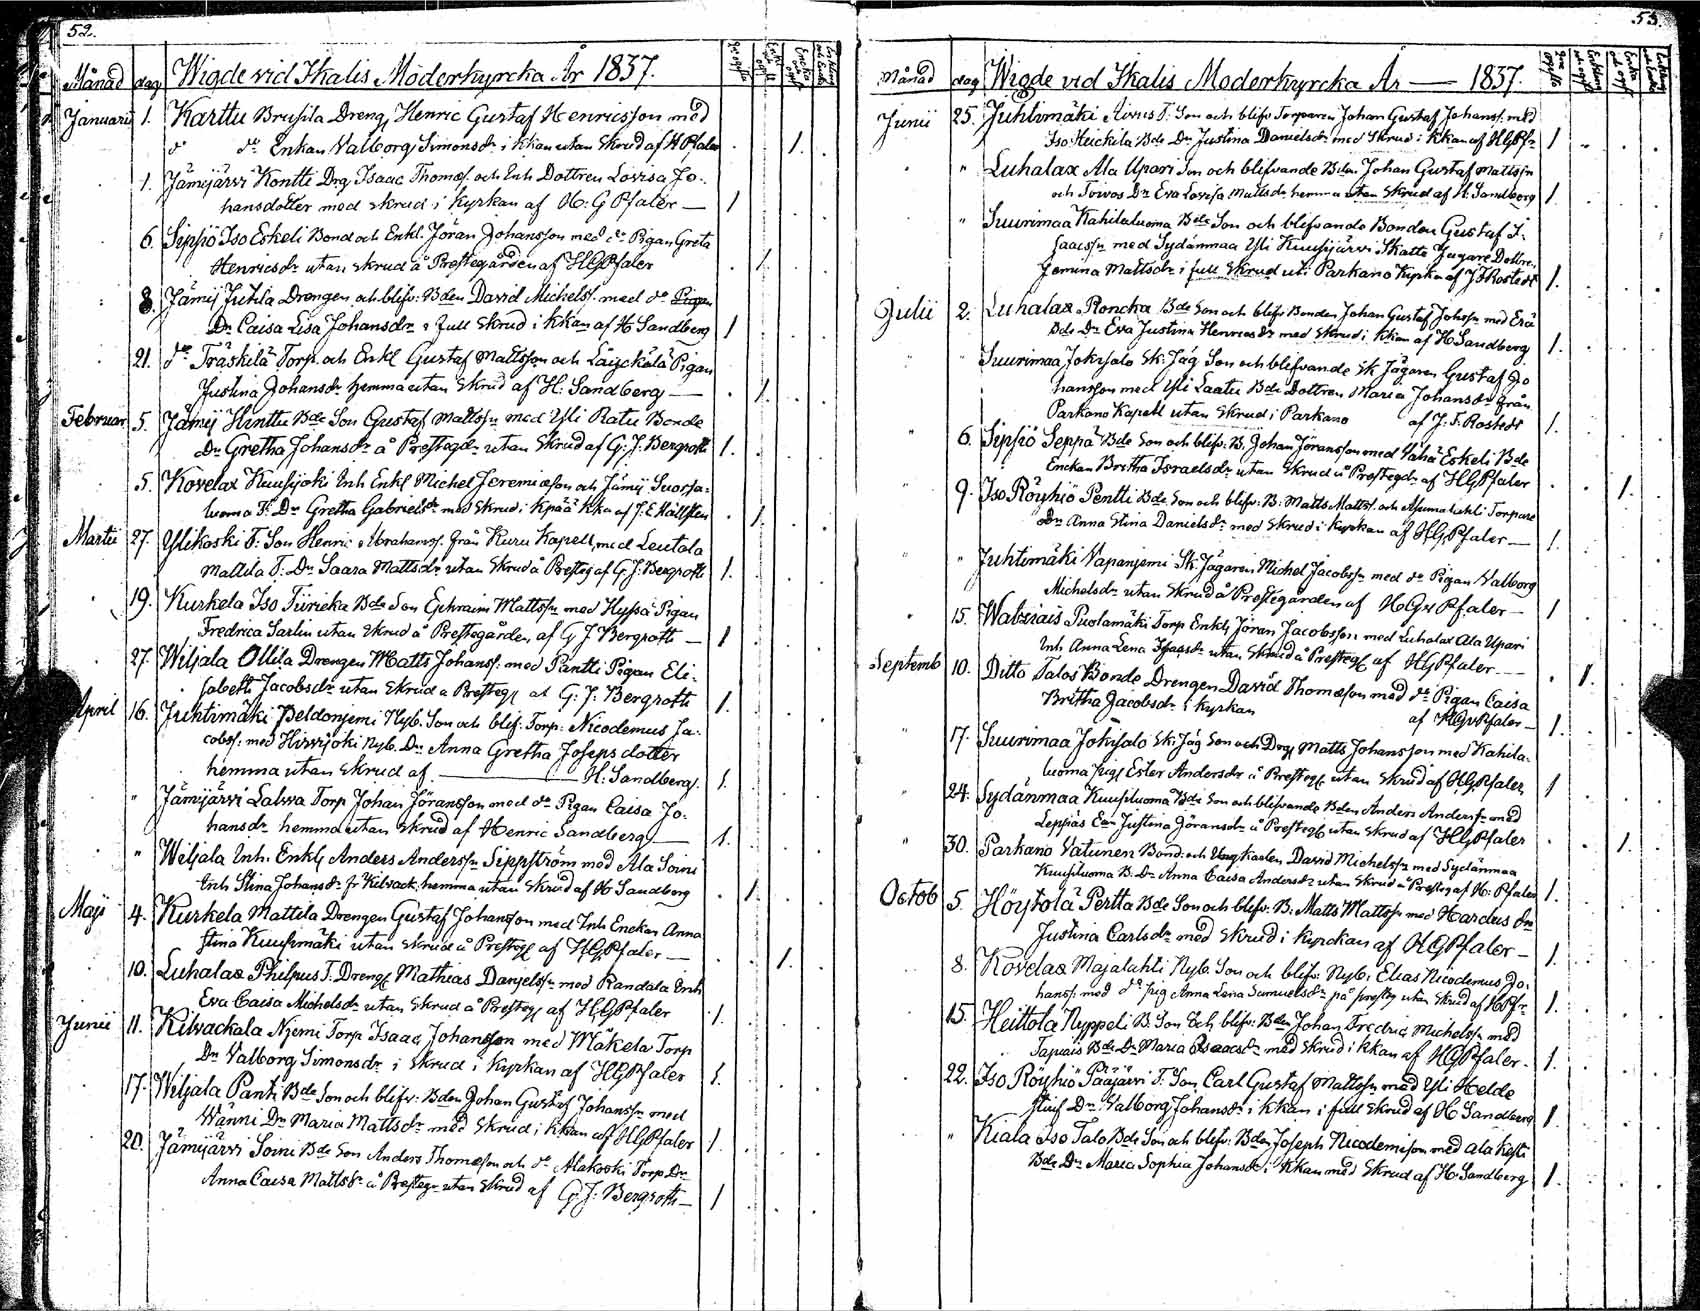 52.
Månad dag Wigde vid Ikalis Moderkyrcka År 1837.
Januarii 1. Karttu Brusila Dreng Henric Gustaf Henricsson med
do do Enkan Valborg Simonsdr i kkan utan skrud af HPfaler 1.
1. Jämijärvi Kontti Drg Isaac Thomæs. och Inh Dottren Lovisa Jo-
hansdotter med skrud i kyrkan af H: G Pfaler — 1
6. Sipsiö Iso Eskeli Bond och Enkl. Jöran Johansson med do Pigan Greta
Henricsdr utan skrud å Prestegården af HGPfaler 1
8. Jämij Juhla Drengen och blifv: Bden David Michelss. med do Pigan
Dr Caisa Lisa Johansdr i full skrud i kkan af H Sandberg 1
21. do Träskilä Torp. och Enkl Gustaf Mattsson och Laijckälä Pigan
Justina Johansdr hemma utan skrud af H: Sandberg — 1.
Februar. 5. Jämij Hinttu Bde Son Gustaf Mattssn med Yli Ratu Bonde
Dr Gretha Johansdr å Prestegdn utan skrud af G: J. Bergroth 1.
5. Kovelax Kuusijoki Inh Enkl Michel Jeremiæson och Jämij Suorsa-
luoma T: Dr Gretha Gabrielsdr med skrud i kka af J: E Hällsten 1.
Martii 27. Ylikoski T: Son Henric Abrahamss. från Kuru Kapell, med Leutola
Mattila T: Dr Saara Mattsdr utan skrud å Presteg af G J: Bergroth 1.
19. Kurkela Iso Türicka Bde Son Ephraim Mattssn med Kyssä Pigan
Fredrica Sarlin utan skrud å Prestegården af G J Bergroth — 1
27. Wiljala Ollila Drengen Matts Johanss: med Pantti Pigan Eli-
sabeth Jacobsdr utan skrud å Presteg af G: J. Bergroth 1.
April 16. Juhtimäki Peldonjemi Nyb. Son och blif: Torp: Nicodemus Ja-
cobss: med Hirvijoki Nyb. Dr Anna Gretha Josephsdotter
hemma utan skrud af — H: Sandberg. 1.
" Jämijärvi Lalwa Torp Johan Jöransson med do Pigan Caisa Jo-
hansdr hemma utan skrud af Henric Sandberg — 1.
" Wiljala Inh. Enkl Anders Anderssn Sippström med Ala Soini
Inh Stina Johansdr fr Kilvack. hemma utan skrud af H Sandberg 1
Maji 4. Kurkela Mattila Drengen Gustaf Johansson med Inh Enckan Anna
Stina Kuusimäki utan skrud å Presteg af HGPfaler — 1.
10. Luhalax Philpus T. Dreng Mathias Danjelssn med Randala Inh
Eva Caisa Michelsdr utan skrud å Presteg af HGPfaler 1.
Junii 11. Kilvackala Njemi Torp Isaac Johansson med Mäkelä Torp
Dr Valborg Simonsdr i skrud i kyrkan af HGPfaler 1.
17. Wiljala Panti Bde Son och blifv: Bden Johan Gustaf Johanssn med
Wänni Dr Maria Mattsdr med skrud i kkan af HGPfaler 1.
20. Jämijärvi Soini Bde Son Anders Thomæson och do Alakoski Torp. Dr
Anna Caisa Mattsdr å Presteg utan skrud af G J: Bergroth — 1
53.
Månad dag Wigde vid Ikalis Moderkyrcka År — 1837.
Junii 25. Juhtimäki T: Son och blifv Torparen Johan Gustaf Johanss. med
Iso Heickila Bde Dr Justina Danielsdr med skrud i kkan af HGPfr 1
" Luhalax Ala Upari Son och blifvande Bden Johan Gustaf Mattssn
och Toivos Dr Eva Lovisa Mattsdr hemma utan skrud af H. Sandberg 1.
" Suurimaa Kahilaluoma Bde Son och blifvande Bonden Gustaf I-
saacssn med Sydänmaa Yli Kuusijärvi Skatte Jägare Dottren
Jemina Mattsdr i full skrud uti Parkano Kyrka af J F Rostedt 1.
Julii 2. Luhalax Roncka Bde Son och blifv Bonden Johan Gustaf Johssn med Erä
Bde Dr Eva Justina Henricsdr med skrud i kkan af H Sandberg 1.
Suurimaa Jokisalo Sk: Jäg Son och blifvande Sk Jägaren Gustaf Jo
hansson med Yli Laatu Bde Dottren Maria Johansdr från
Parkano Kapell utan skrud i Parkano af J. F. Rostedt 1.
6. Sipsiö Seppä Bde Son och blifv: B. Johan Jöransson med Vähä Eskeli Bde
Enckan Britha Israelsdr utan skrud å Prestegdn af HGPfaler 1.
9. Iso Röyhiö Pentti Bde Son och blifv: B: Matts Mattss. och Torpare
Dr Anna Stina Danielsdr med skrud i kyrkan af HGPfaler — 1.
" Juhtimäki Vapanjemi Sk: Jägaren Michel Jacobssn med do Pigan Valborg
Michelsdr utan skrud å Prestegården af HGPfaler — 1
15. Puolamäki Torp Enkl Jöran Jacobsson med Luhalax Ala Upari
Inh Anna Lena Isaacsdr utan skrud å Presteg af HGPfaler — 1.
Septemb 10. Ditto Talos Bonde Drengen David Thomæson med do Pigan Caisa
Britha Jacobsdr i kyrkan af HGPfaler — 1.
" 17. Suurimaa Jokisalo Sk: Jäg Son och Drg Matts Johansson med Kahila-
luoma pig Ester Andersdr å Presteg utan skrud af HGPfaler 1
" 24. Sydänmaa Kuusiluoma Bde Son och blifvande Bden Anders Anderssn med
Leppäs Justina Jöransdr å Presteg utan skrud af HGPfaler 1.
" 30. Parkano Vatunen Bond: och Ungkarlen David Michelssn med Sydänmaa
Kuusiluoma B. Dr Anna Caisa Andersdr utan skrud å Presteg af H: Pfaler 1.
Octob 5. Höytölä Pertta Bde Son och blifv: B: Matts Mattssn med Hardus Dr
Justina Carlsdr med skrud i kyrckan af HGPfaler — 1.
8. Kovelax Majalahti Nyb. Son och blifv: Nyb: Elias Nicodemus Jo-
hanss: med do pig Anna Lena Samuelsdr på presteg utan skrud af HPfr 1.
15. Heittola Nyppeli B. Son och blifv: Bden Johan Fredric Michelssn med
Tapiais Bde Dr Maria Isaacsdr med skrud i kkan af HGPfaler. 1.
22. Iso Röyhiö Pääjärvi T: Son Carl Gustaf Mattssn med Yli Helde
Stiuf Dr Valborg Johansdr i kkan i full skrud af H Sandberg 1.
" Kiala Iso Talo Bde Son och blifv: Bden Joseph Nicodemison med Ala Kesti
Bde Dr Maria Sophia Johansdr i kkan med skrud af H. Sandberg 1.